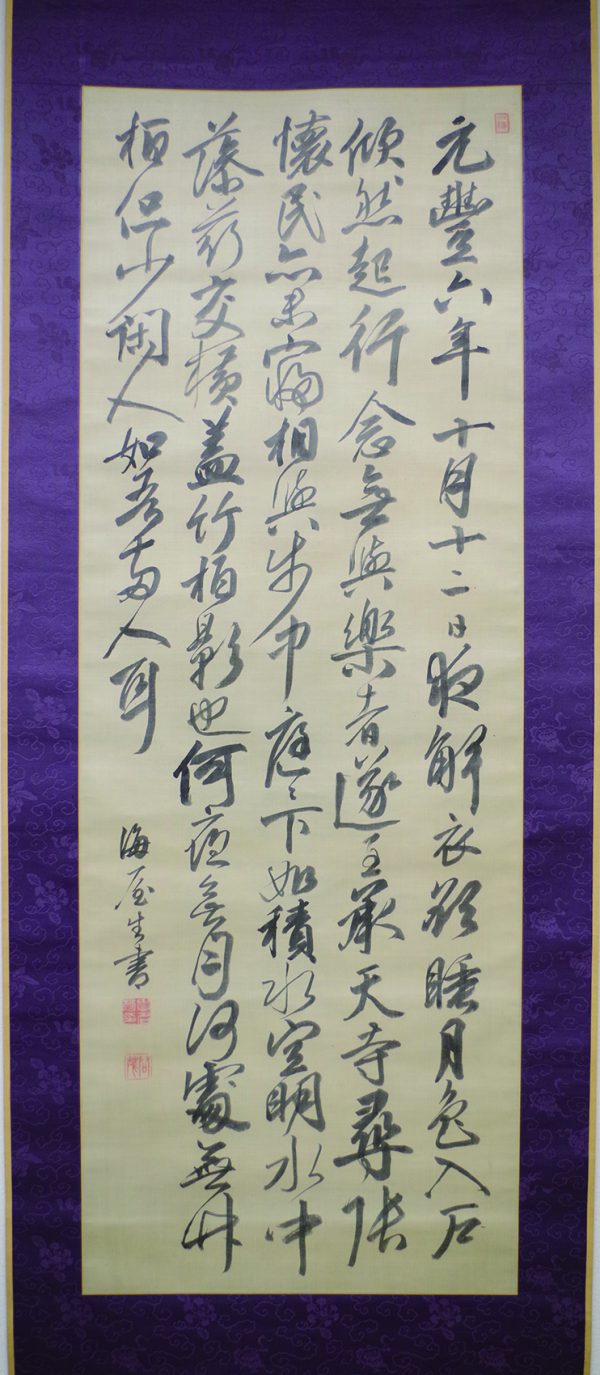 元豐六年十月十二日夜解衣欲睡月色入戶
然起行念無與樂者遂至承天寺尋張
懷民亦未寢相與步中庭〻下如積水空明水中
藻荇交橫蓋竹柏影也何夜無月何處無竹
柏但少閑人如吾兩人耳
海屋生書